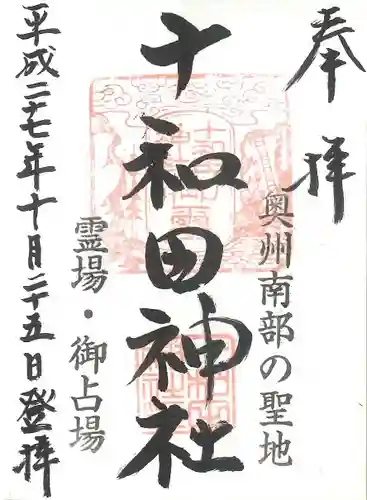 奉拝
奥州南部の聖地
十和田神社
霊場・御占場
平成二十七年十月二十五日登拝